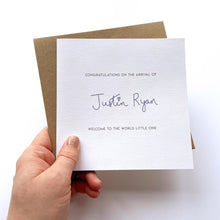 CONGRATULATIONS ON THE ARRIVAL OF
Justin Ryan
WELCOME TO THE WORLD LITTLE ONE